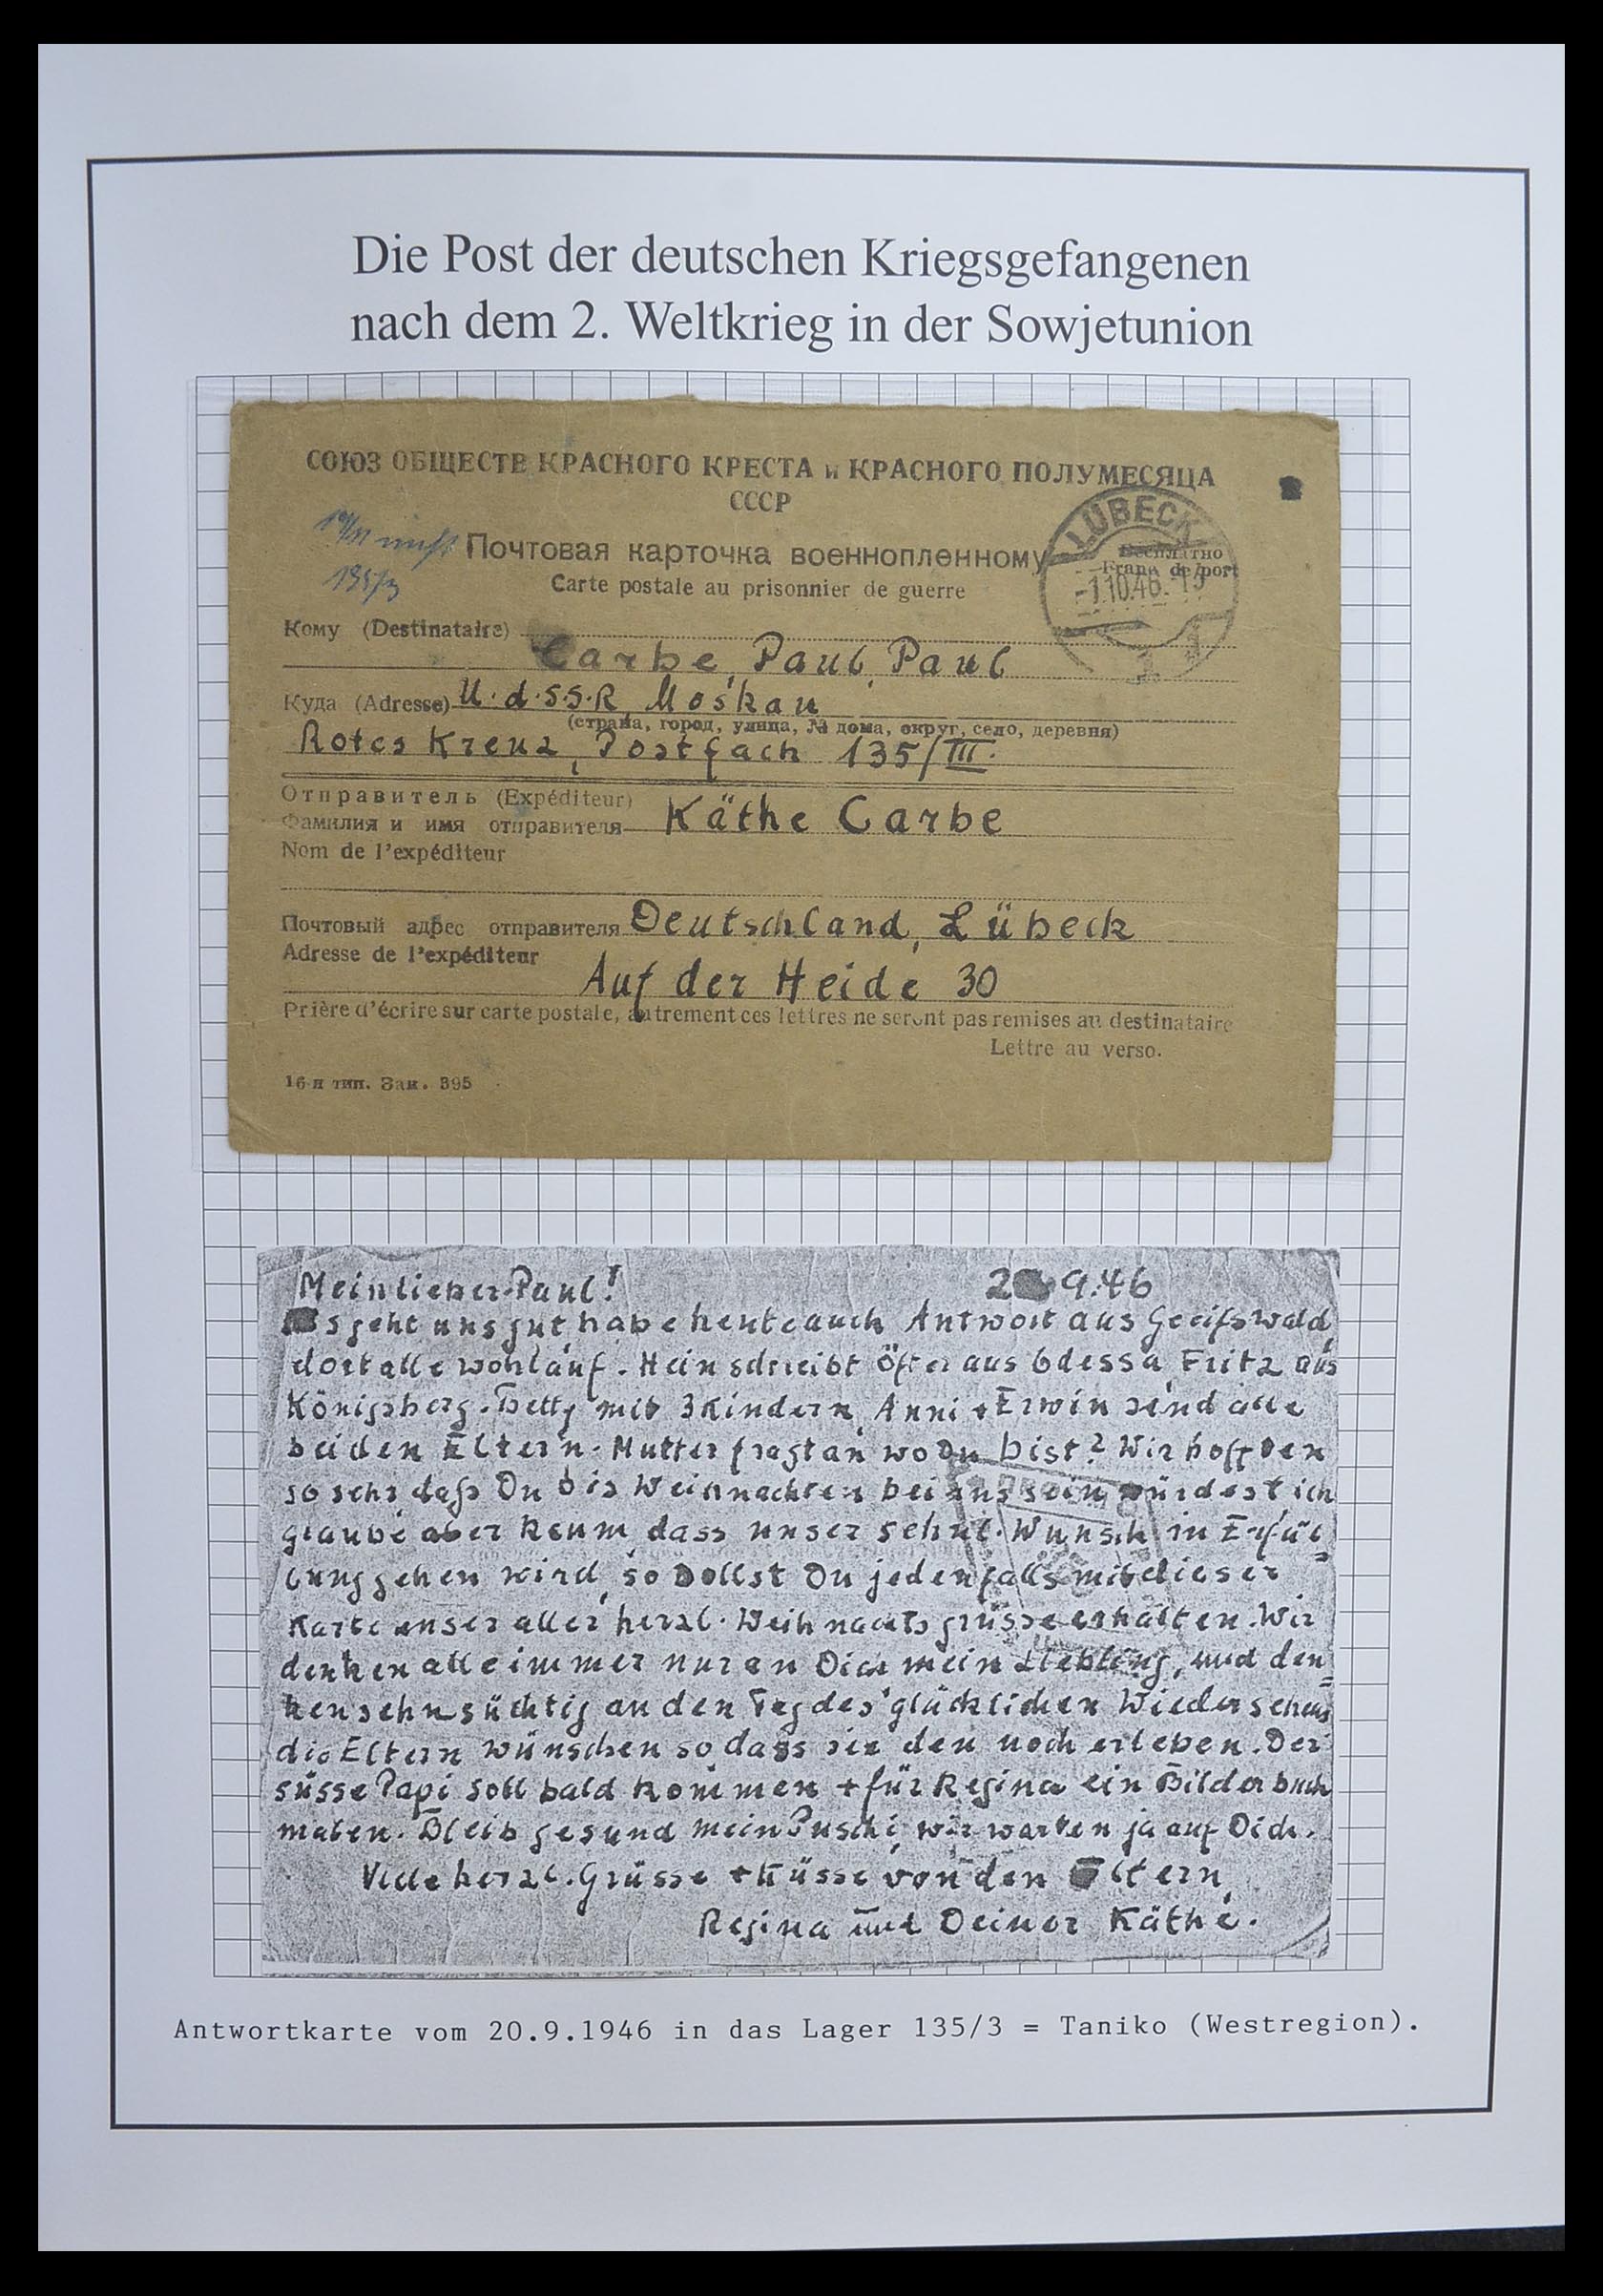 Die Post der deutschen Kriegsgefangenen
nach dem 2. Weltkrieg in der Sowjetunion
СОЮЗ ОБЩЕСТВ КРАСНОГО КРЕСТА и КРАСНОГО ПОЛУМЕСЯЦА
СССР
LÜBECK
Почтовая карточка военнопленному
Бесплатно
Carte postale au prisonnier de guerre
Franc de port
135/3
-1.10.46.
Кому (Destinataire)
Carbe, Paul, Paul
Куда (Adresse) U.d.S.S.R, Moskau
(страна, город, улица, № дома, округ, село, деревня)
Rotes Kreuz, Postfach 135/III.
Отправитель (Expéditeur)
Фамилия и имя отправителя Käthe Carbe
Nom de l'expéditeur
Почтовый адрес отправителя Deutschland, Lübeck
Adresse de l'expéditeur
Auf der Heide 30
Prière d'écrire sur carte postale, autrement ces lettres ne seront pas remises au destinataire
Lettre au verso.
16-я тип. Зак. 395
Mein lieber Paul! 9.46
Es geht uns gut, habe heute auch Antwort aus Greifswald,
dort alle wohlauf. Hein schreibt öfter aus Odessa, Fritz aus
Königsberg. Hetty mit 3 Kindern, Anni + Erwin sind alle
bei den Eltern. Mutter fragt an wo Du bist? Wir hofften
so sehr, daß Du bis Weihnachten bei uns sein würdest, ich
glaube aber kaum, dass unser sehnl. Wunsch in Erfül=
lung gehen wird, so sollst Du jedenfalls mit dieser
Karte unser aller herzl. Weihnachtsgrüsse erhalten. Wir
denken alle immer nur an Dich mein Liebling, und den=
ken sehnsüchtig an den Tag des glücklichen Wiedersehens
die Eltern wünschen so dass sie den noch erleben. Der
süsse Papi soll bald kommen + für Regina ein Bilderbuch
malen. Bleib gesund mein Puschi, wir warten ja auf Dich.
Viele herzl. Grüsse + Küsse von den Eltern,
Regina und Deiner Käthe.
Antwortkarte vom 20.9.1946 in das Lager 135/3 = Taniko (Westregion).